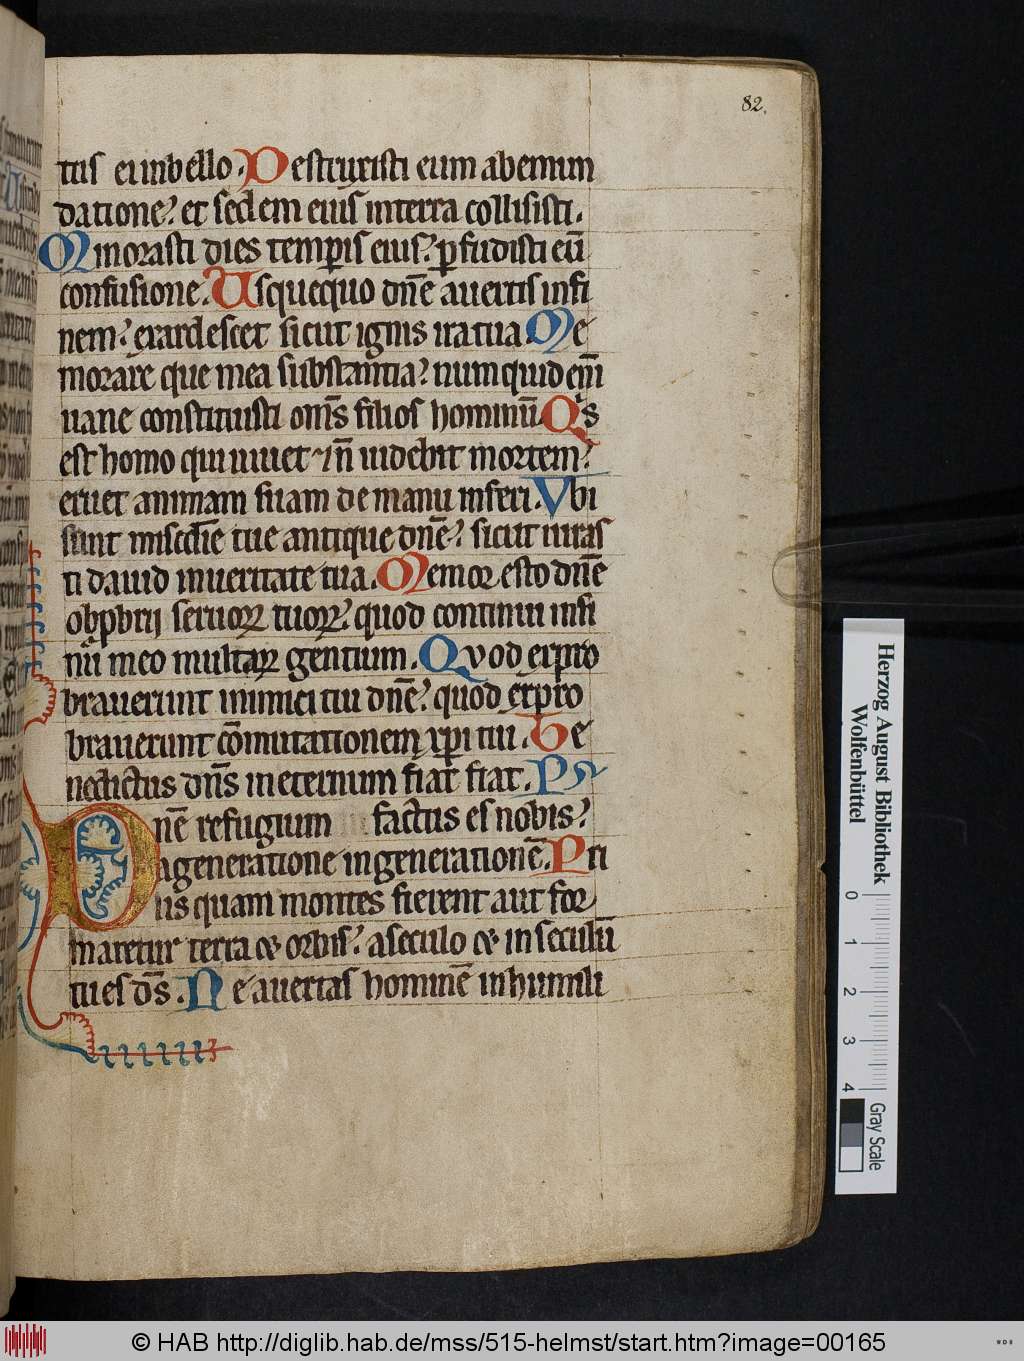 82.
tus ei in bello. Destruxisti eum ab emun
datione? et sedem eius in terra collisisti.
Minorasti dies temp̄is eius? p̄fudisti eū
confusione. Usquequo dn̄e avertis in fi
nem? exardescet sicut ignis ira tua Me
morare que mea substantia? num quid eni̅m
uane constituisti om̄s filios hominū. Qs
est homo qui uiuet ⁊ n̄ uidebit mortem?
eruet animam suam de manu inferi. Vbi
sunt misc̄die tue antique dn̄e? sicut iuras
ti dauid in ueritate tua. Memor esto dn̄e
obp̄brij seruoꝝ tuoꝝ? quod continui in si
nu meo multaꝝ gentium. Quod expro
brauerunt inimici tui dn̄e? quod expro
brauerunt cōmutationem xp̄i tui. Be
nedictus dn̄s in eternum fiat fiat. Ps
Dn̄e refugium factus es nobis?
a generatione in generationē. Pri
us quam montes fierent aut for
maretur terra et orbis? a seculo et in seculū
tu es ds̄. Ne auertas hominē in humili
Herzog August Bibliothek
Wolfenbüttel
0 1 2 3 4
Gray Scale
© HAB http://diglib.hab.de/mss/515-helmst/start.htm?image=00165